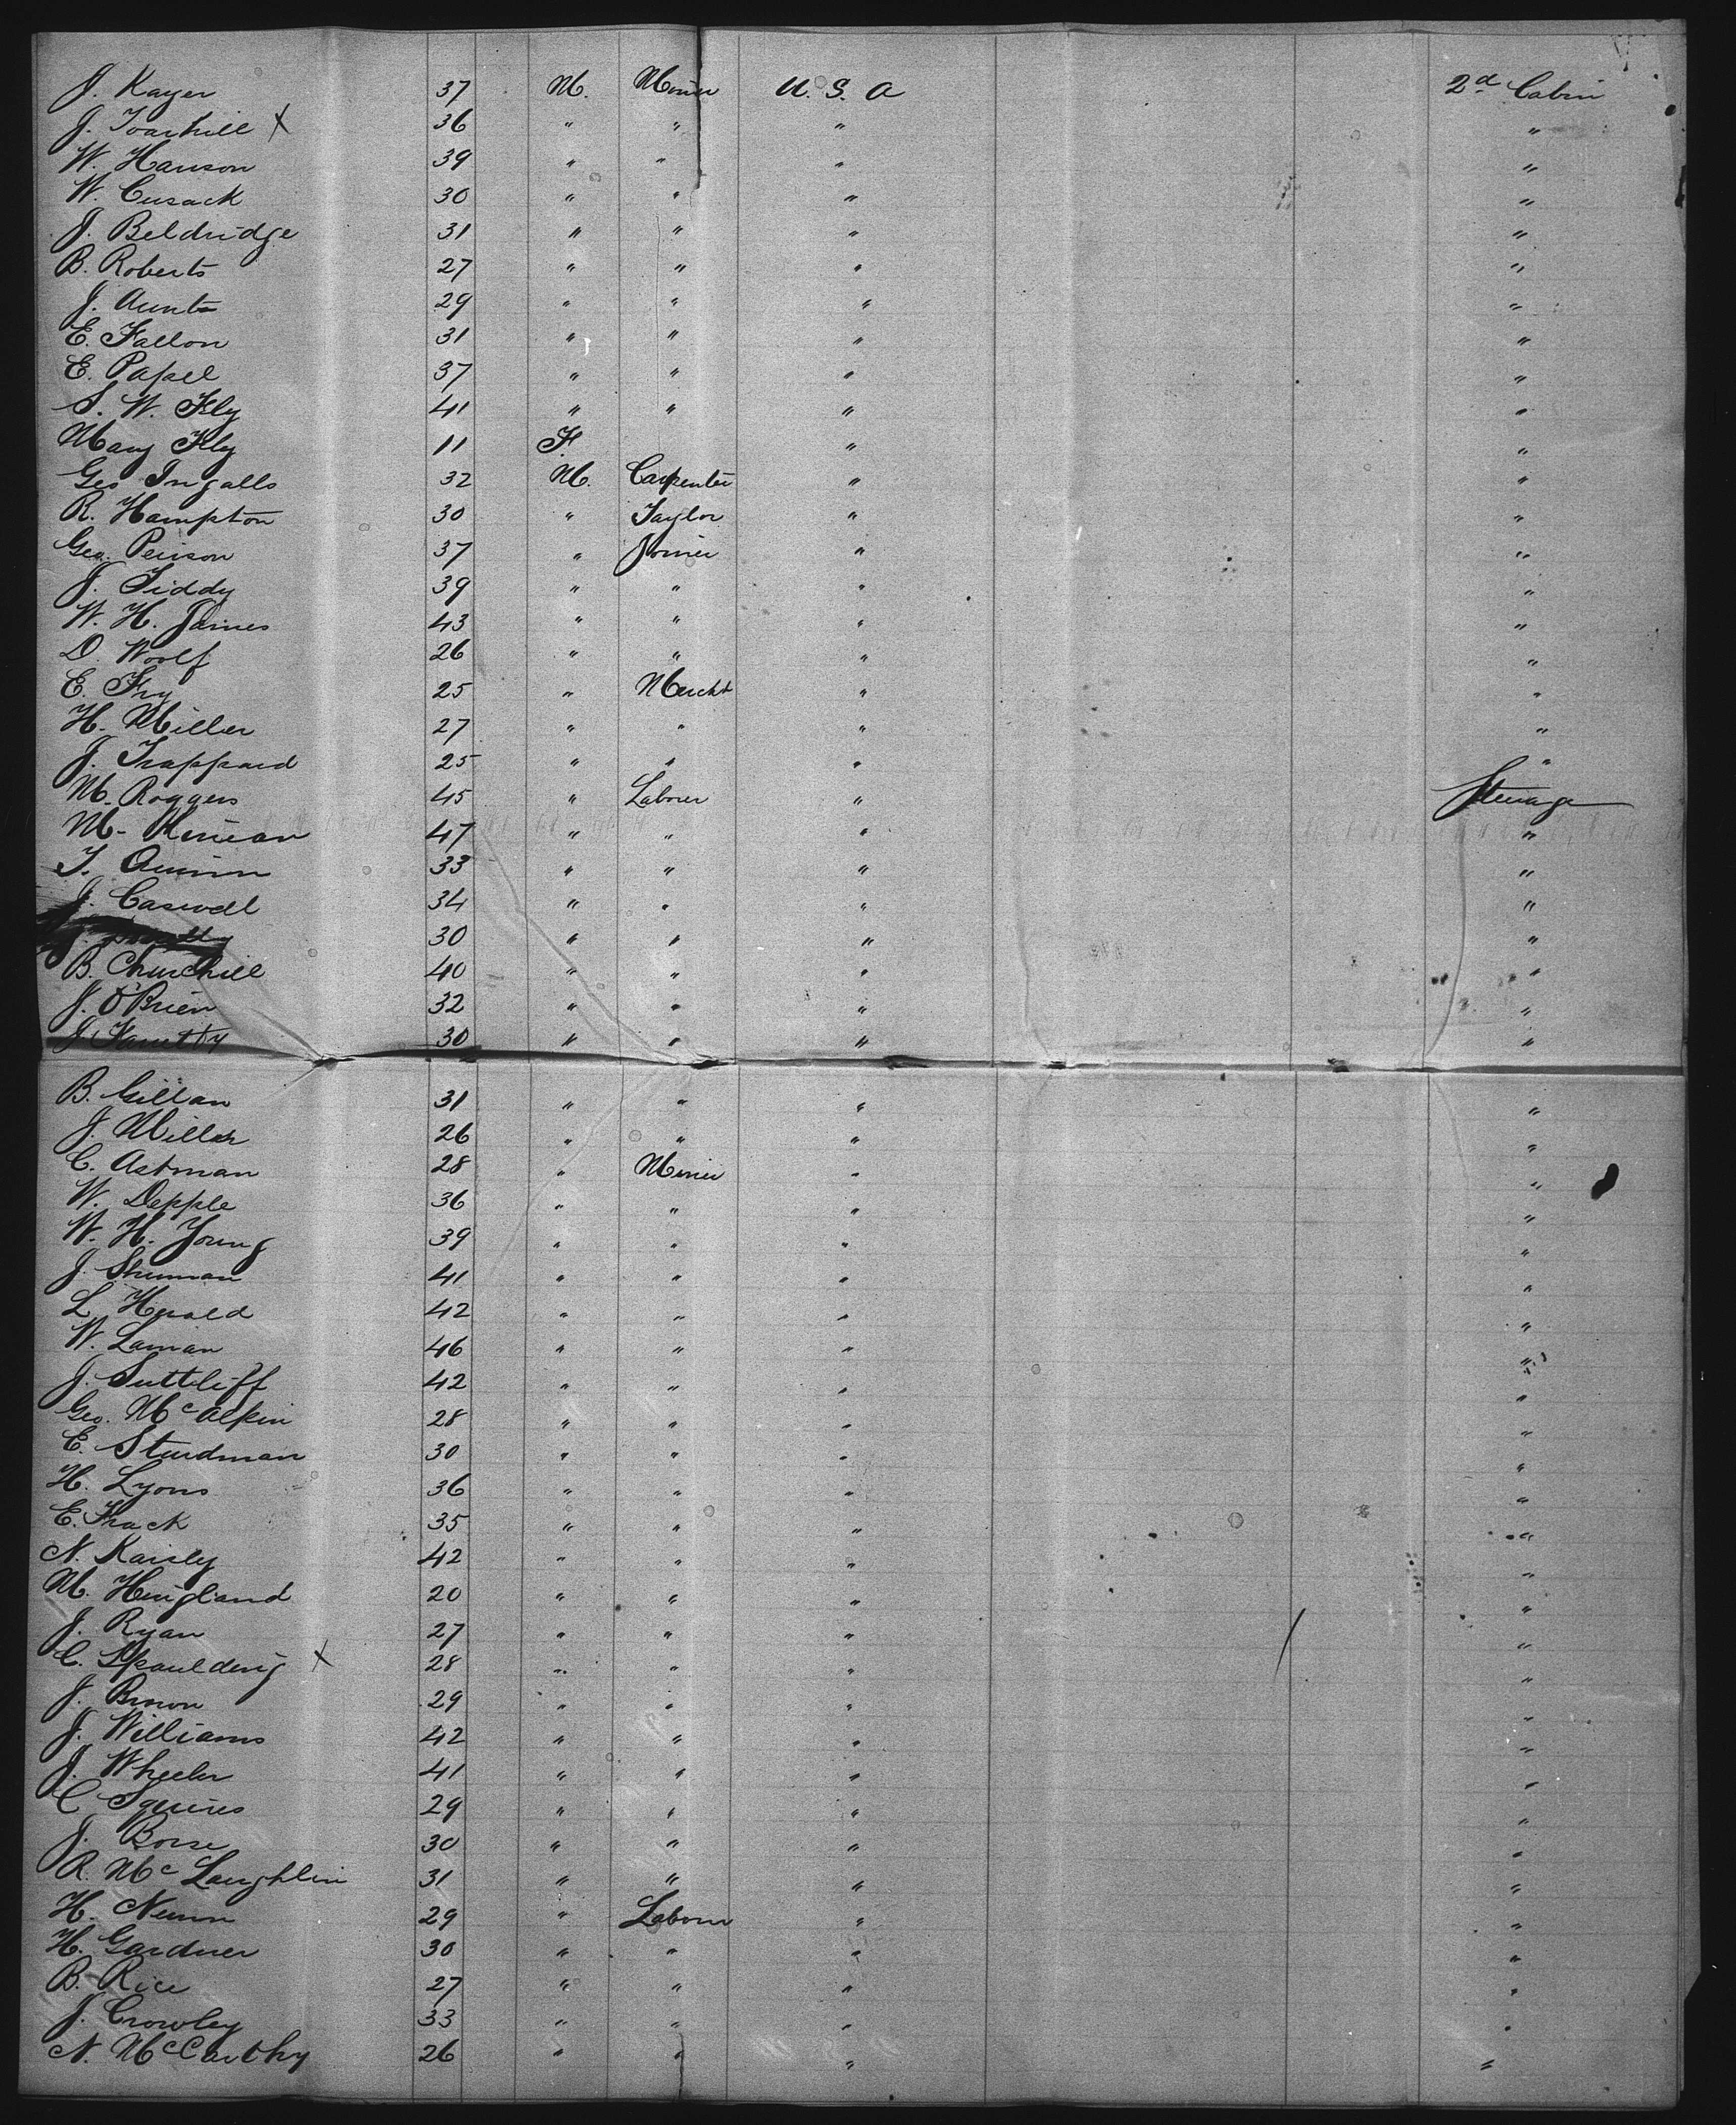 J. Kayer 37 M. Miner U. S. A 2d Cabin
J. Toarhill X 36 " " " "
W. Hanson 39 " " " "
W. Cusack 30 " " " "
J. Beldridge 31 " " " "
B. Roberts 27 " " " "
J. Aunts 29 " " " "
E. Fallon 31 " " " "
E. Papel 37 " " " "
S. W. Fly 41 " " " "
Mary Fly 11 F. " "
Geo Ingalls 32 M. Carpenter " "
R. Hampton 30 " Taylor " "
Geo. Peirson 37 " Joiner " "
J. Tiddy 39 " " " "
W. H. James 43 " " " "
D. Woolf 26 " " " "
E. Fry 25 " Mercht " "
H. Miller 27 " " " "
J. Trappard 25 " " " "
M. Roggers 45 " Laborer " Steerage
M. Kinean 47 " " " "
T. Quinn 33 " " " "
J. Caswell 34 " " " "
30 " " " "
B. Churchill 40 " " " "
J. O'Brien 32 " " " "
J. 30 " " " "
B. Gillan 31 " " " "
J. Miller 26 " " " "
C. Astman 28 " Miner " "
W. Depple 36 " " " "
W. H. Young 39 " " " "
J. Shuman 41 " " " "
L. Herold 42 " " " "
W. Laman 46 " " " "
J. Suttcliff 42 " " " "
Geo. McAlpin 28 " " " "
E. Sturdman 30 " " " "
H. Lyons 36 " " " "
E. Frack 35 " " " "
N. Kaisly 42 " " " "
M. Hengland 20 " " " "
J. Ryan 27 " " " "
C. Spaulding X 28 " " " "
J. Brown 29 " " " "
J. Williams 42 " " " "
J. Wheeler 41 " " " "
C Squires 29 " " " "
J. Borse 30 " " " "
R. McLaughlin 31 " " " "
H. Nunn 29 " Laborer " "
H. Gardner 30 " " " "
B. Rice 27 " " " "
J. Crowley 33 " " " "
N. McCarthy 26 " " " "